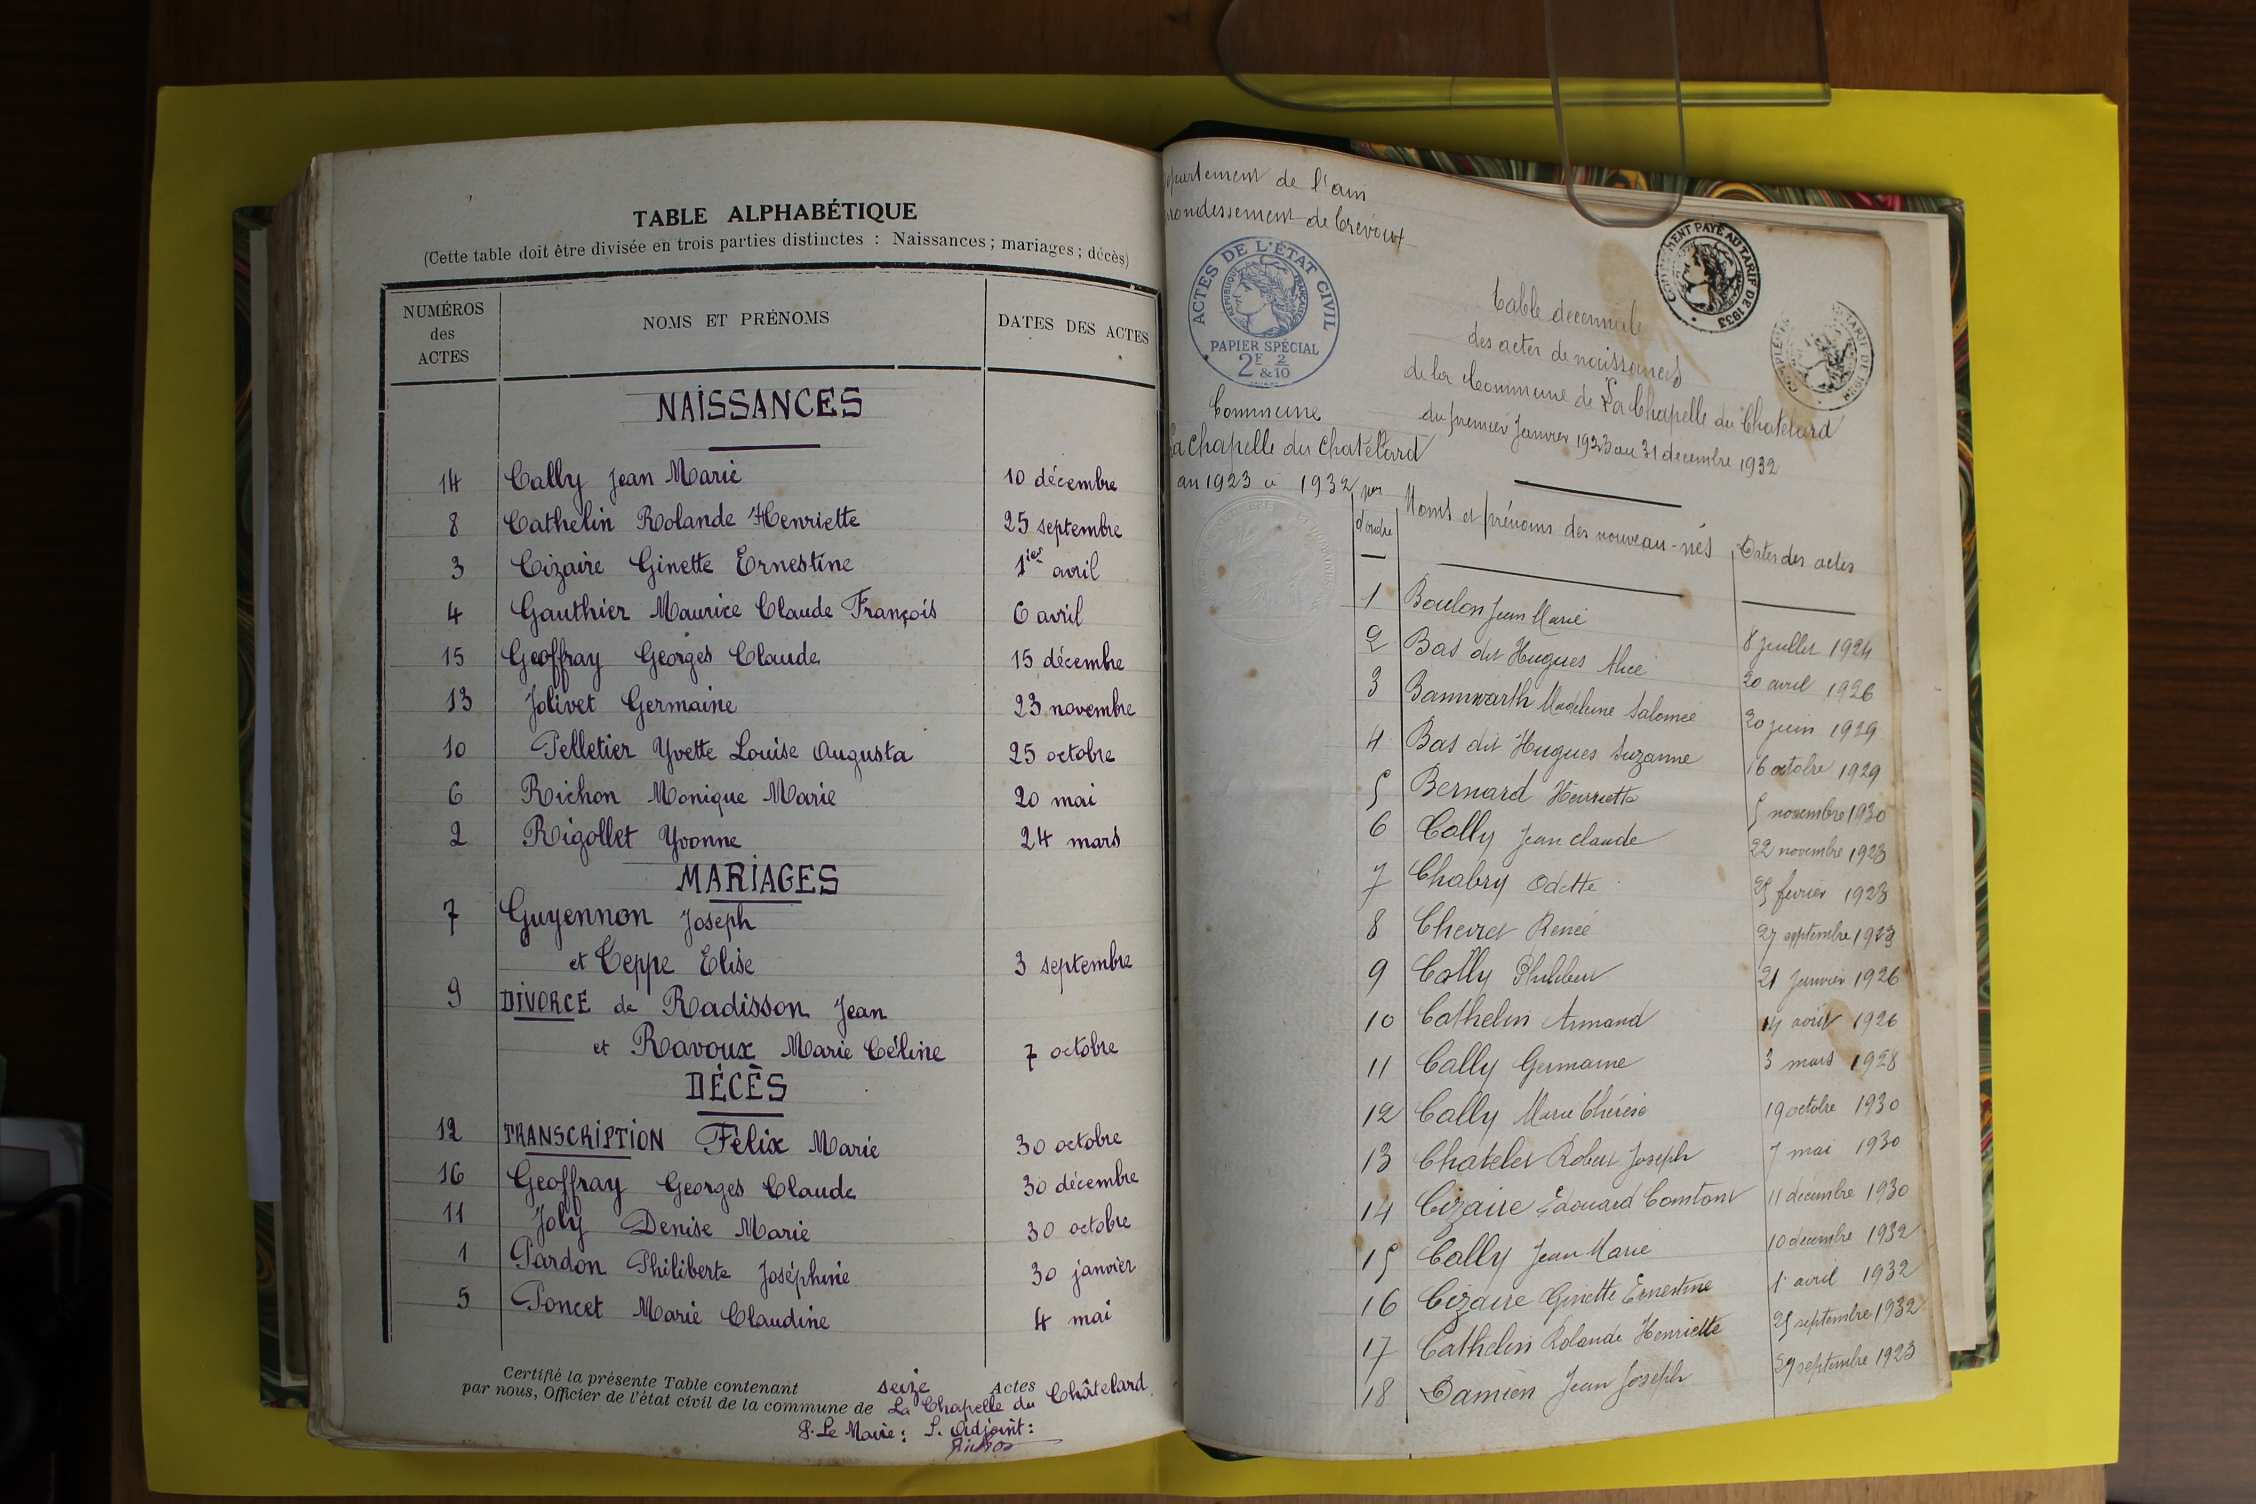 TABLE ALPHABÉTIQUE
(Cette table doit être divisée en trois parties distinctes : Naissances ; mariages ; décès)
NUMÉROS des ACTES NOMS ET PRÉNOMS DATES DES ACTES
NAISSANCES
14 Cally Jean Marie 10 décembre
8 Cathelin Rolande Henriette 25 septembre
3 Cizaire Ginette Ernestine 1ier avril
4 Gauthier Maurice Claude François 6 avril
15 Geoffray Georges Claude 15 décembre
13 Jolivet Germaine 23 novembre
10 Pelletier Yvette Louise Augusta 25 octobre
6 Richon Monique Marie 20 mai
2 Rigollet Yvonne 24 mars
MARIAGES
7 Guyennon Joseph
et Teppe Elise 3 septembre
9 DIVORCE de Radisson Jean
et Ravoux Marie Céline 7 octobre
DÉCÈS
12 TRANSCRIPTION Félix Marie 30 octobre
16 Geoffray Georges Claude 30 décembre
11 Joly Denise Marie 30 octobre
1 Pardon Philiberte Joséphine 30 janvier
5 Poncet Marie Claudine 4 mai
Certifié la présente Table contenant seize Actes
par nous, Officier de l'état civil de la commune de La Chapelle du Châtelard.
P. Le Maire : L'Adjoint :
partement de l'ain
rondissement de Trévoux
ACTES DE L'ÉTAT CIVIL
RÉPUBLIQUE FRANÇAISE
PAPIER SPÉCIAL
2F 2/10
&
COMPLÉMENT PAYÉ AU TARIF DE 1933
Table decennale
des actes de naissances
de la Commune de La Chapelle du Chatelard
du premier Janvier 1923 au 31 decembre 1932
Commune
La chapelle du chatelard
an 1923 à 1932
d'ordre Noms et prénoms des nouveau-nés Dates des actes
1 Boulon Jean Marie 8 juillet 1924
2 Bas dit Hugues Alice 20 avril 1926
3 Bannwarth Madeleine Salomée 20 juin 1929
4 Bas dit Hugues Suzanne 16 octobre 1929
5 Bernard Henriette 5 novembre 1930
6 Cally Jean claude 22 novembre 1923
7 Chabry Odette 25 fevrier 1923
8 Chevret Renée 27 septembre 1923
9 Cally Philibert 21 Janvier 1926
10 Cathelin Armand 14 avril 1926
11 Cally Germaine 3 mars 1928
12 Cally Marie Thérèse 19 octobre 1930
13 Chatelet Robert Joseph 7 mai 1930
14 Cizaire Edouard Constant 11 decembre 1930
15 Cally Jean Marie 10 decembre 1932
16 Cizaire Ginette Ernestine 1 avril 1932
17 Cathelin Rolande Henriette 25 septembre 1932
18 Damien Jean Joseph 29 septembre 1923